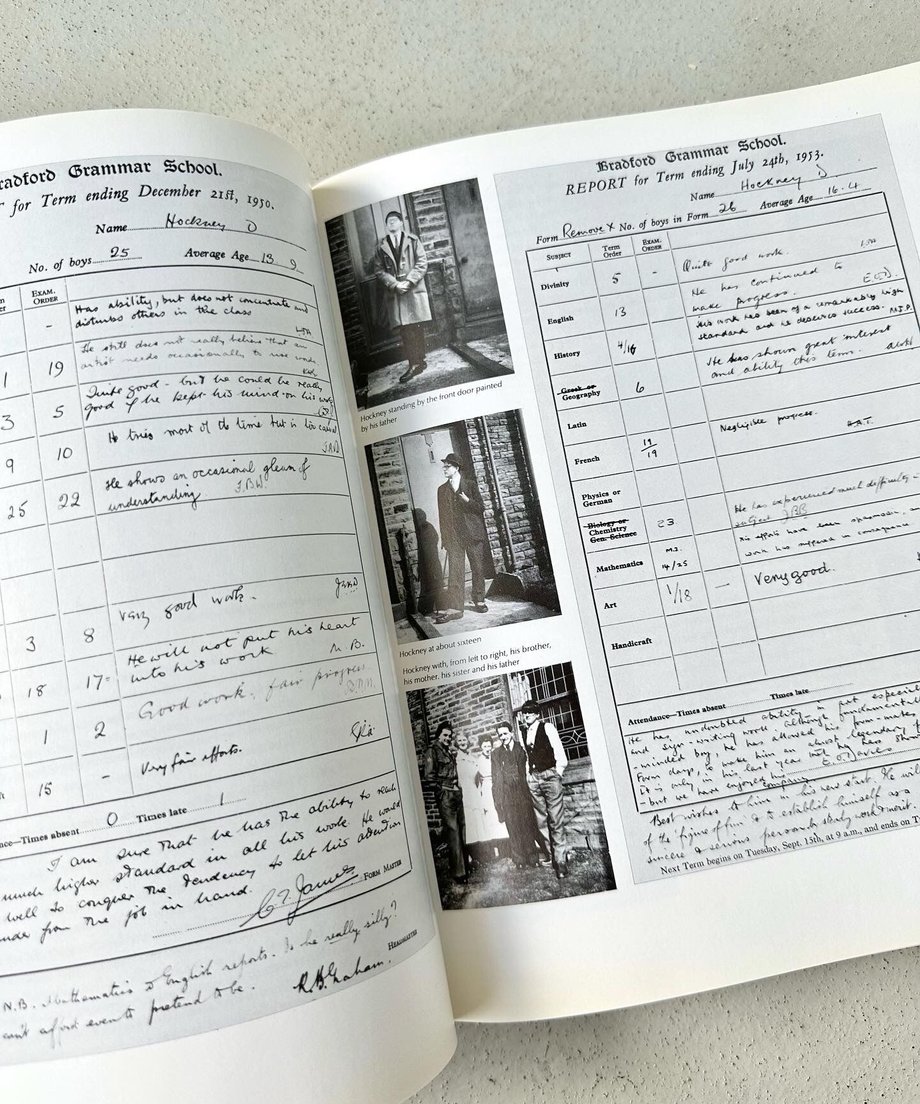 radford Grammar School.
for Term ending December 21st, 1950.
Name Hockney D
No. of boys 25 Average Age 13 9
EXAM. ORDER
Has ability, but does not concentrate and
disturbs others in the class
-
He still does not really believe that an
artist needs occasionally to use words
1 19
Quite good - but he could be really
good if he kept his mind on his work
3 5
He tries most of the time but is
9 10
He shows an occasional gleam of
understanding
25 22
Very good work.
3 8
He will not put his heart
into his work
18 17
Good work, fair progress
1 2
Very fair efforts.
15 -
nce—Times absent 0 Times late 1
I am sure that he has the ability to reach
much higher standard in all his work. He would
well to conquer the tendency to let his attention
nder from the job in hand.
C. F. James FORM MASTER
N.B. Mathematics & English reports. Is he really silly?
an't afford even to pretend to be.
R.B. Graham. HEADMASTER
Hockney standing by the front door painted
by his father
Hockney at about sixteen
Hockney with, from left to right, his brother,
his mother, his sister and his father
Bradford Grammar School.
REPORT for Term ending July 24th, 1953.
Name Hockney D
Form Remove X No. of boys in Form 26 Average Age 16.4
SUBJECT TERM ORDER EXAM. ORDER
Divinity 5 - Quite good work.
English 13 He has continued to
make progress. E.O.D.
History 4/16 His work has been of a remarkably high
standard and he deserves success.
Greek or
Geography 6 He has shown great interest
and ability this term.
Latin
French 19/19 Negligible progress.
Physics or
German
Biology or
Chemistry 23 He has experienced much difficulty
Gen. Science subject
Mathematics 14/25 His efforts have been spasmodic,
work has suffered in consequence
Art 1/18 — Very good.
Handicraft
Attendance—Times absent Times late
He has undoubted ability in art especial
and sign-writing work although fundamental
-minded boy he has allowed his form-mates
Form days, to make him an almost legendary
it is only in his last year that he has
- but we have enjoyed his company E.O. Davies
Best wishes to him in his new start. He will
of the 'figure of fun' & to establish himself as a
sincere & serious person by steady work & merit
Next Term begins on Tuesday, Sept. 15th, at 9 a.m., and ends on T